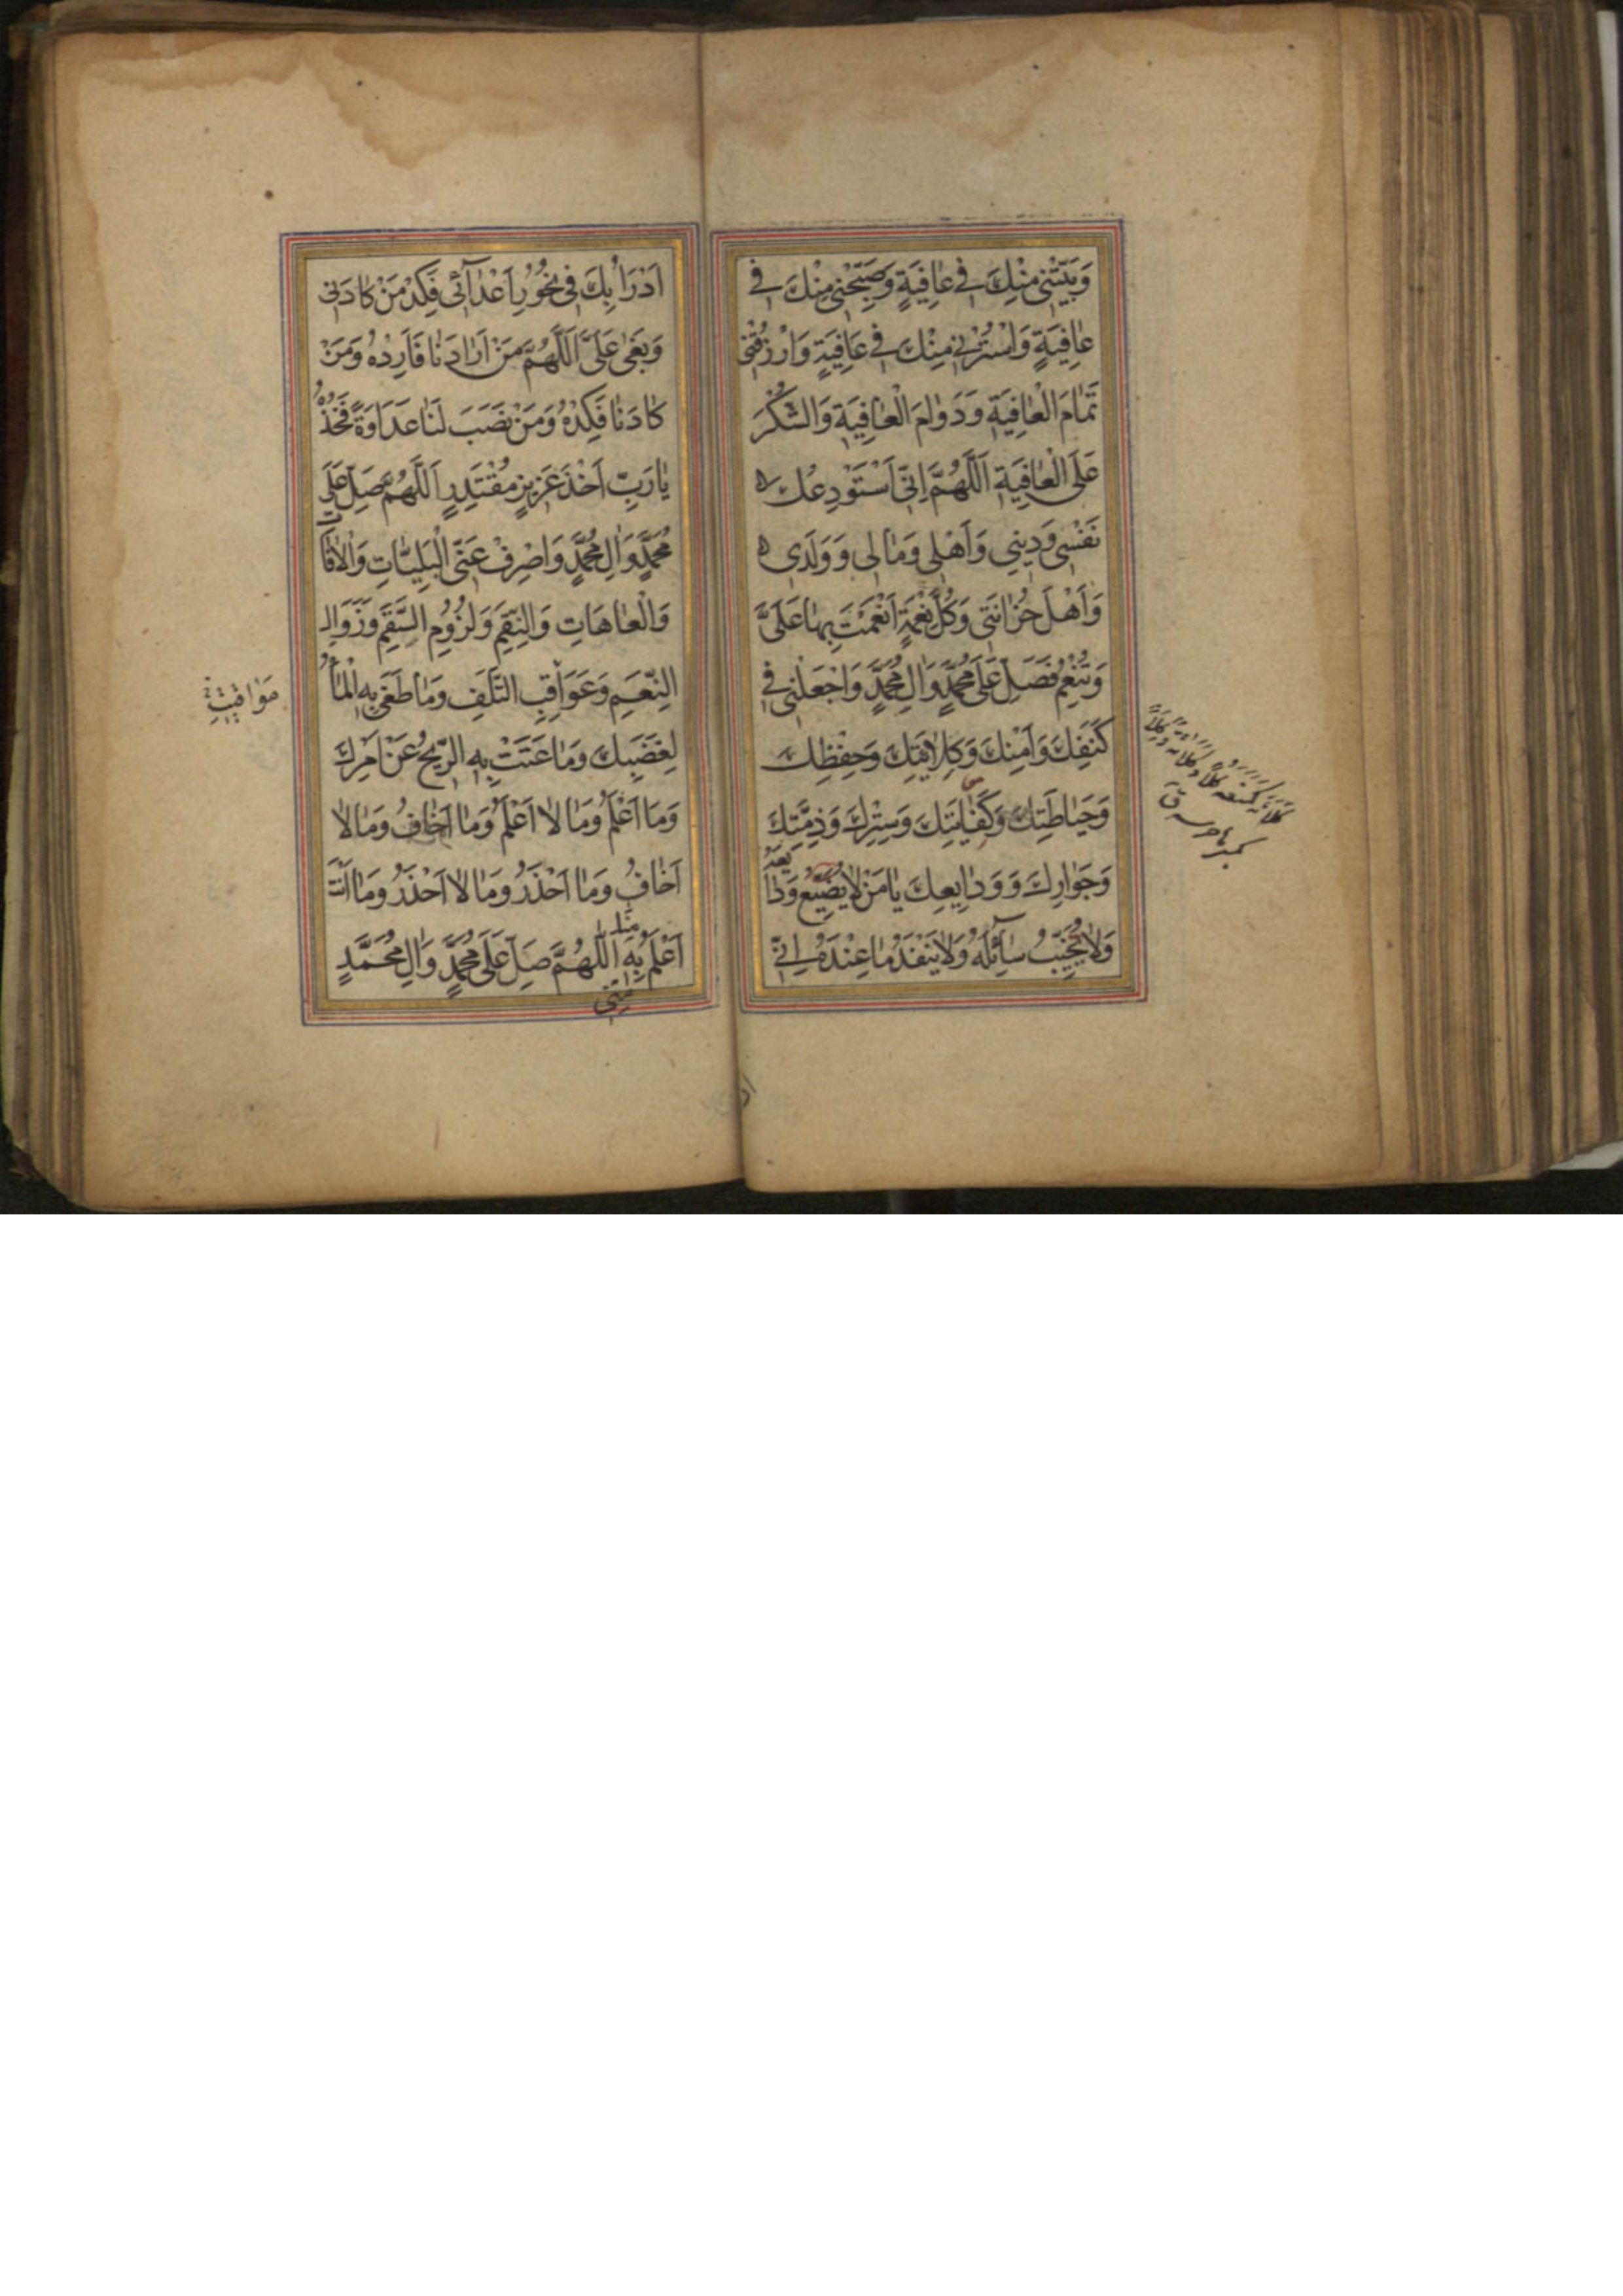 وَبَيِّتْنِي مِنْكَ فِي عَافِيَةٍ وَصَبِّحْنِي مِنْكَ فِي
عَافِيَةٍ وَاسْتُرْنِي مِنْكَ فِي عَافِيَةٍ وَارْزُقْنِي
تَمَامَ الْعَافِيَةِ وَدَوَامَ الْعَافِيَةِ وَالشُّكْرَ
عَلَى الْعَافِيَةِ اَللَّهُمَّ اِنِّي اَسْتَوْدِعُكَ
نَفْسِي وَدِينِي وَاَهْلِي وَمَالِي وَوَلَدِي
وَاَهْلَ حُزَانَتِي وَكُلَّ نِعْمَةٍ اَنْعَمْتَ بِهَا عَلَيَّ
وَتُنْعِمُ فَصَلِّ عَلَى مُحَمَّدٍ وَالِ مُحَمَّدٍ وَاجْعَلْنِي فِي
كَنَفِكَ وَاَمْنِكَ وَكِلَائَتِكَ وَحِفْظِكَ
وَحِيَاطَتِكَ وَكَفَايَتِكَ وَسِتْرِكَ وَذِمَّتِكَ
وَجَوَارِكَ وَوَدَايِعِكَ يَا مَنْ لَا يُضَيِّعُ وَدَايِعَهُ
وَلَا يُخَيِّبُ سَآئِلَهُ وَلَا يَنْفَدُ مَا عِنْدَهُ اِنِّي
اَدْرَاُ بِكَ فِي نُحُورِ اَعْدَآئِي فَكِدْ مَنْ كَادَنِي
وَبَغَى عَلَيَّ اَللَّهُمَّ مَنْ اَرَادَنَا فَاَرِدْهُ وَمَنْ
كَادَنَا فَكِدْهُ وَمَنْ نَصَبَ لَنَا عَدَاوَةً فَخُذْهُ
يَا رَبِّ اَخْذَ عَزِيزٍ مُقْتَدِرٍ اَللَّهُمَّ صَلِّ عَلَى
مُحَمَّدٍ وَالِ مُحَمَّدٍ وَاصْرِفْ عَنِّي الْبَلِيَّاتِ وَالْافَاتِ
وَالْعَاهَاتِ وَالنِّقَمَ وَلُزُومِ السَّقَمِ وَزَوَالِ
النِّعَمِ وَعَوَاقِبِ التَّلَفِ وَمَا طَغَى بِهِ الْمَاءُ
لِغَضَبِكَ وَمَا عَتَتْ بِهِ الرِّيحُ عَنْ اَمْرِكَ
وَمَا اَعْلَمُ وَمَا لَا اَعْلَمُ وَمَا اَخَافُ وَمَا لَا
اَخَافُ وَمَا اَحْذَرُ وَمَا لَا اَحْذَرُ وَمَا اَنْتَ
اَعْلَمُ بِهِ اَللَّهُمَّ صَلِّ عَلَى مُحَمَّدٍ وَالِ مُحَمَّدٍ
مِنِّي